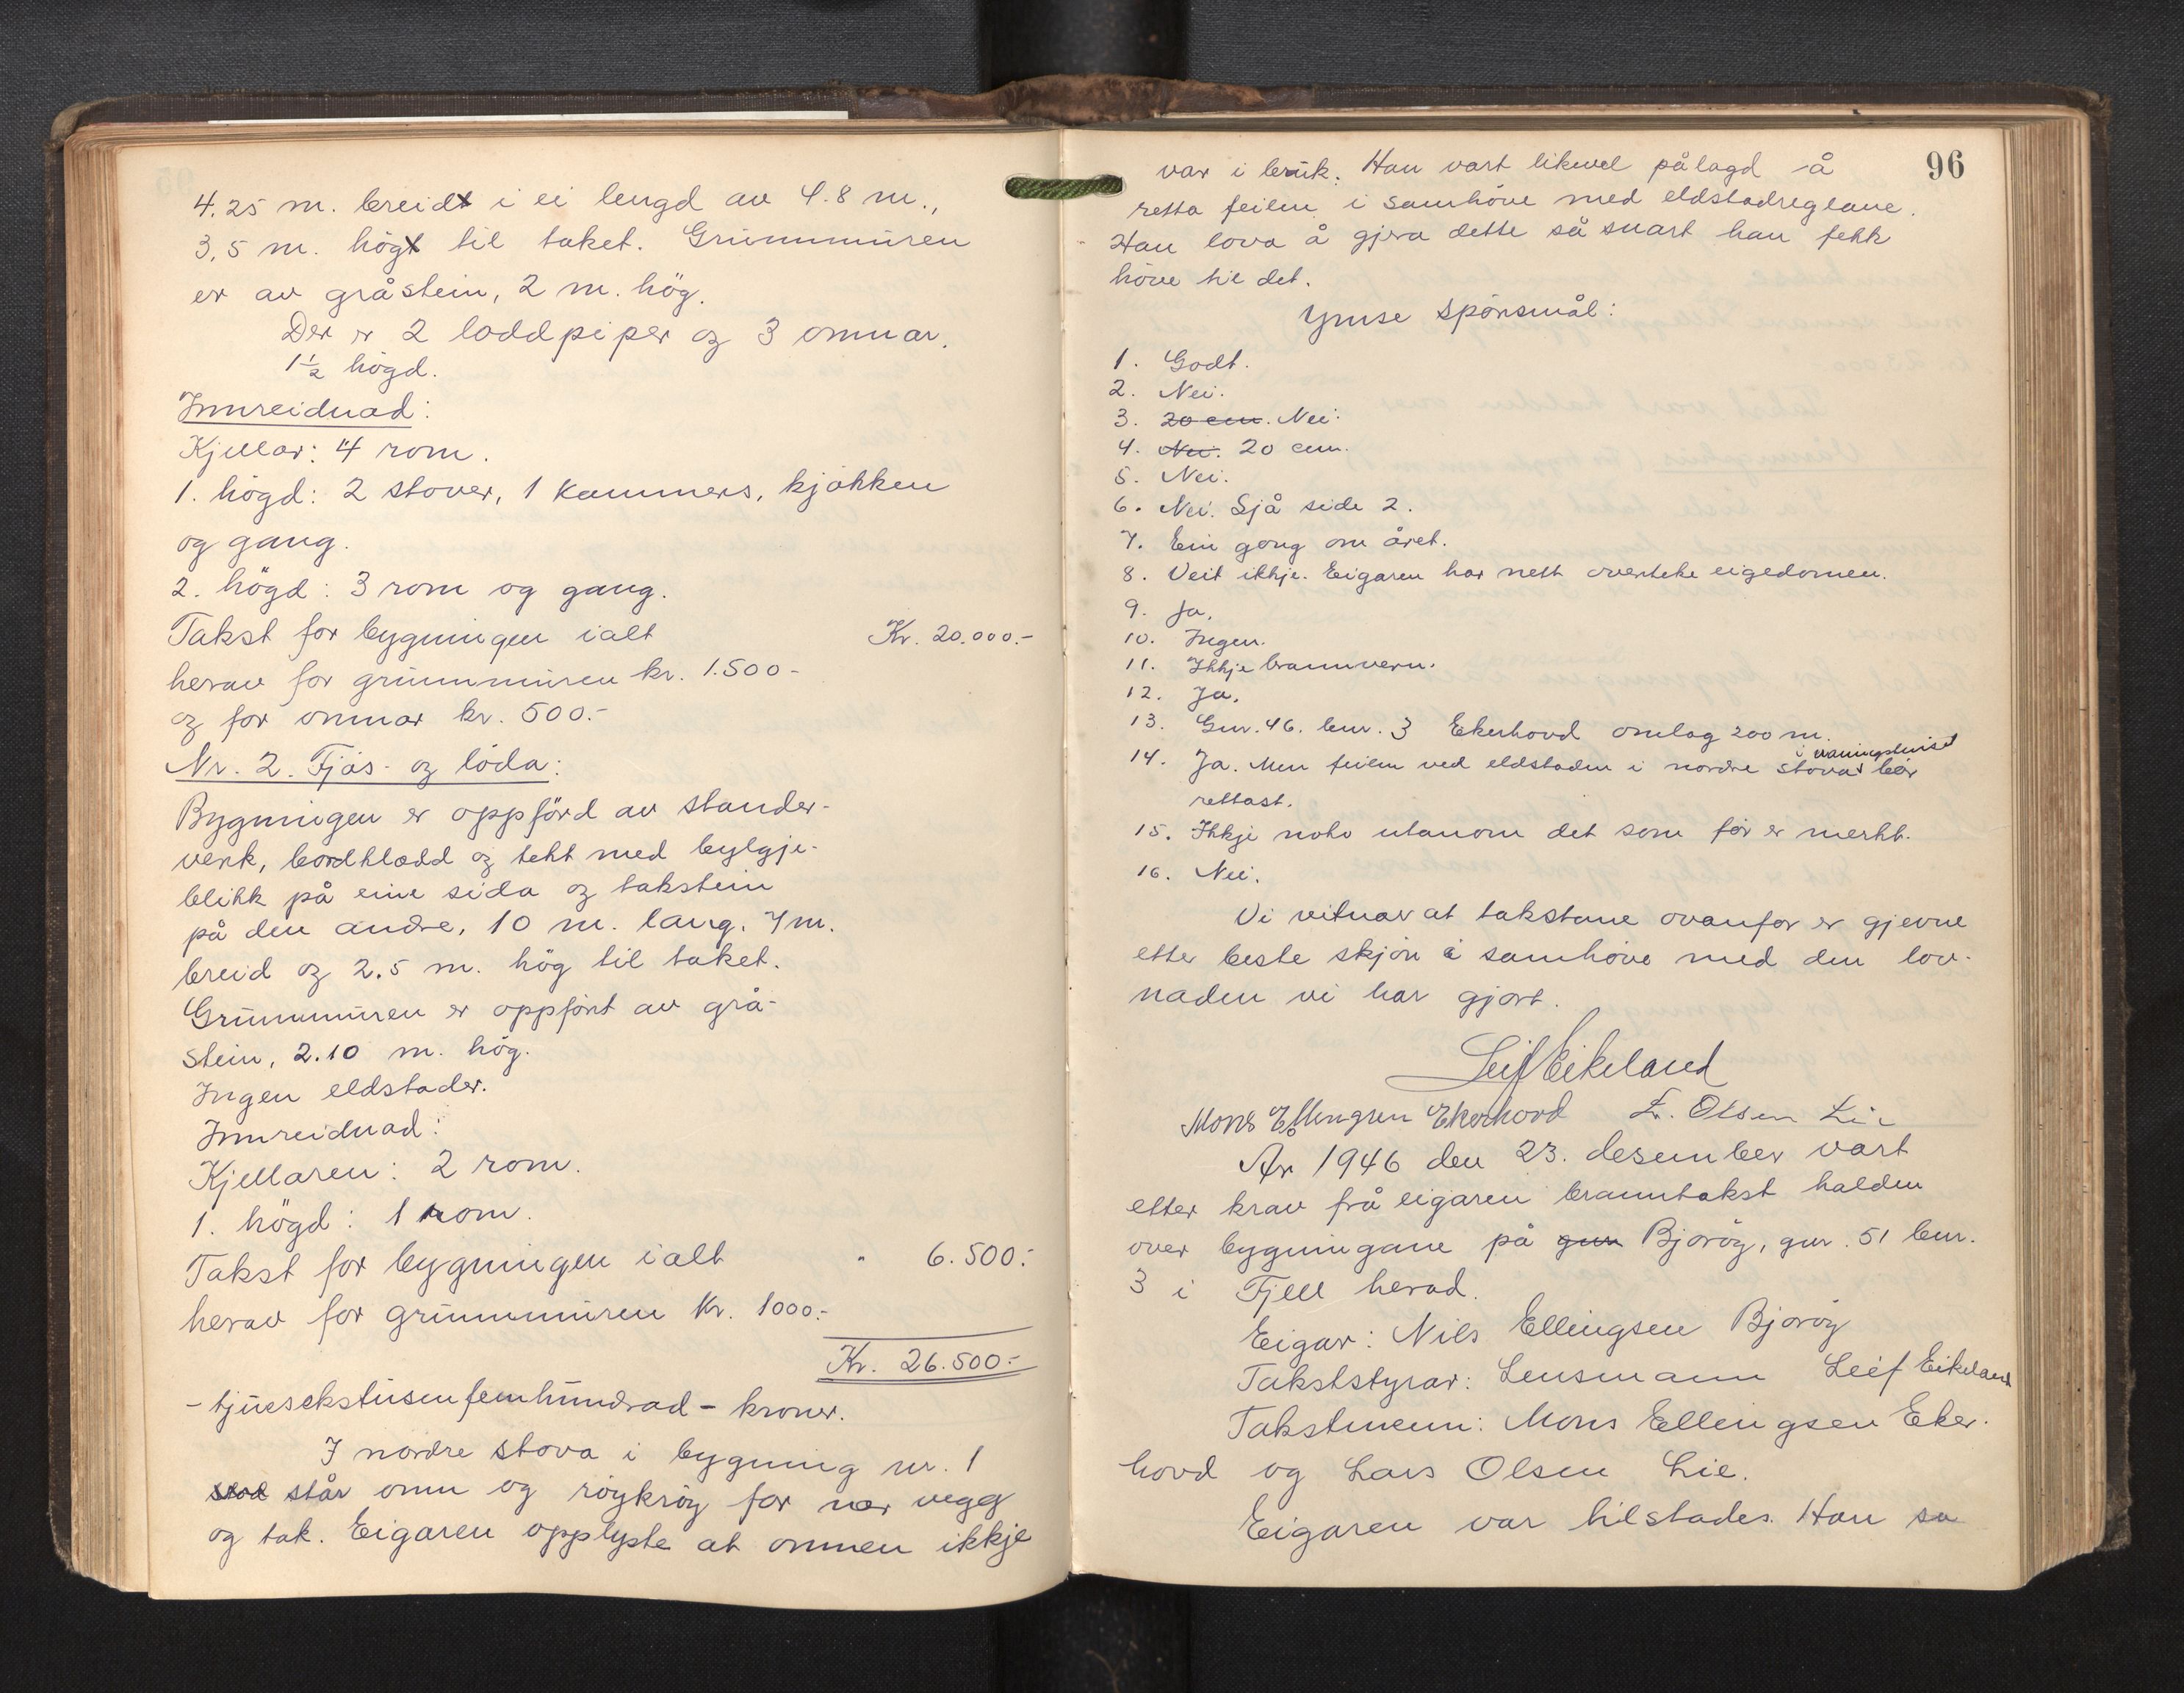 4.25 m. breid i ei lengd av 4.8 m.,
3,5 m. høg til taket. Grunnmuren
er av gråstein, 2 m. høg.
Der er 2 loddpiper og 3 omnar.
1½ høgd.
Innreidnad:
Kjellar: 4 rom.
1. høgd: 2 stover, 1 kammers, kjøkken
og gang.
2. høgd: 3 rom og gang.
Takst for bygningen ialt Kr. 20.000.-
herav for grunnmuren kr. 1.500-
og for omnar kr. 500.-
Nr. 2. Fjøs- og løda:
Bygningen er oppförd av stander-
verk, bordklædd og tekt med bylgje-
blikk på eine sida og takstein
på den andre, 10 m. lang, 7 m.
breid og 2.5 m. høg til taket.
Grunnmuren er oppført av grå-
stein, 2.10 m. høg.
Ingen eldstader.
Innreidnad:
Kjellaren: 2 rom.
1. høgd: 1 rom.
Takst for bygningen ialt " 6.500:-
herav for grunnmuren Kr. 1000:-
Kr. 26.500:-
- tjuesekstusenfemhundrad - kroner.
I nordre stova i bygning nr. 1
står omn og røykrøyr for nær vegg
og tak. Eigaren opplyste at omnen ikkje
96
var i bruk. Han vart likevel pålagd å
retta feilen i samhøve med eldstadreglane.
Han lova å gjera dette så snart han fekk
høve til det.
Ymse spørsmål:
1. Godt.
2. Nei.
3. 20 cm. Nei.
4. Nei. 20 cm.
5. Nei.
6. Nei. Sjå side 2.
7. Ein gong om året.
8. Veit ikkje. Eigaren har nett overteke eigedomen.
9. Ja.
10. Ingen.
11. Ikkje brannvern.
12. Ja.
13. Gnr. 46. bnr. 3 Ekerhovd omlag 200 m.
i våningshuset
14. Ja. Men feilen ved eldstaden i nordre stova bör
rettast.
15. Ikkje noko utanom det som før er merkt.
16. Nei.
Vi vitnar at takstane ovanfor er gjevne
etter beste skjøn i samhøve med den lov-
naden vi har gjort.
Leif Eikeland
Mons Ellingsen Ekerhovd L. Olsen Lie
År 1946 den 23. desember vart
etter krav frå eigaren branntakst halden
over bygningane på gnr Bjorøy, gnr. 51 bnr.
3 i Fjell herad.
Eigar: Nils Ellingsen Bjorøy
Takststyrar: Lensmann Leif Eikeland
Takstmenn: Mons Ellingsen Eker-
hovd og Lars Olsen Lie.
Eigaren var tilstades. Han sa